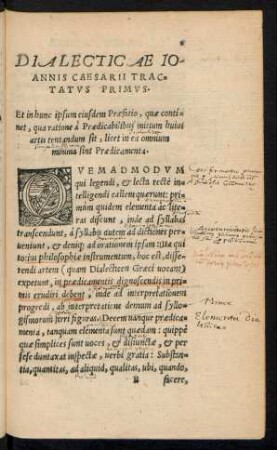 DIALECTICAE IO-
ANNIS CAESARII TRAC-
TATVS PRIMVS.
Et in hunc ipsum eiusdem Præfatio, quæ conti-
net, qua ratione à Prædicabilibus initium huius
artis tentandum sit, licet in ea omnium
minima sint Prædicamenta.
QVEMADMODVM
qui legendi, & lecta recte in-
telligendi callem querunt: pri-
mum quidem elementa ac lite-
ras discunt, inde ad syllabas
transcendunt, à syllabis autem ad dictiones per-
ueniunt, & deniq; ad orationem ipsam: ita qui
totius philosophiæ instrumentum, hoc est, disse-
rendi artem (quam Dialecticen Græci uocant)
expetunt, in prædicamentis dignoscendis in pri-
mis erudiri debent, inde ad interpretationem
progredi, ab interpretatione demum ad syllo-
gismorum ferri figuras. Decem uanque prædica-
menta, tanquam elementa sunt quædam: quippe
quæ simplices sunt uoces, & disiunctæ, & per
sese duntaxat inspectæ, uerbi gratia: Substan-
tia, quantitas, ad aliquid, qualitas, ubi, quando,
B facere,